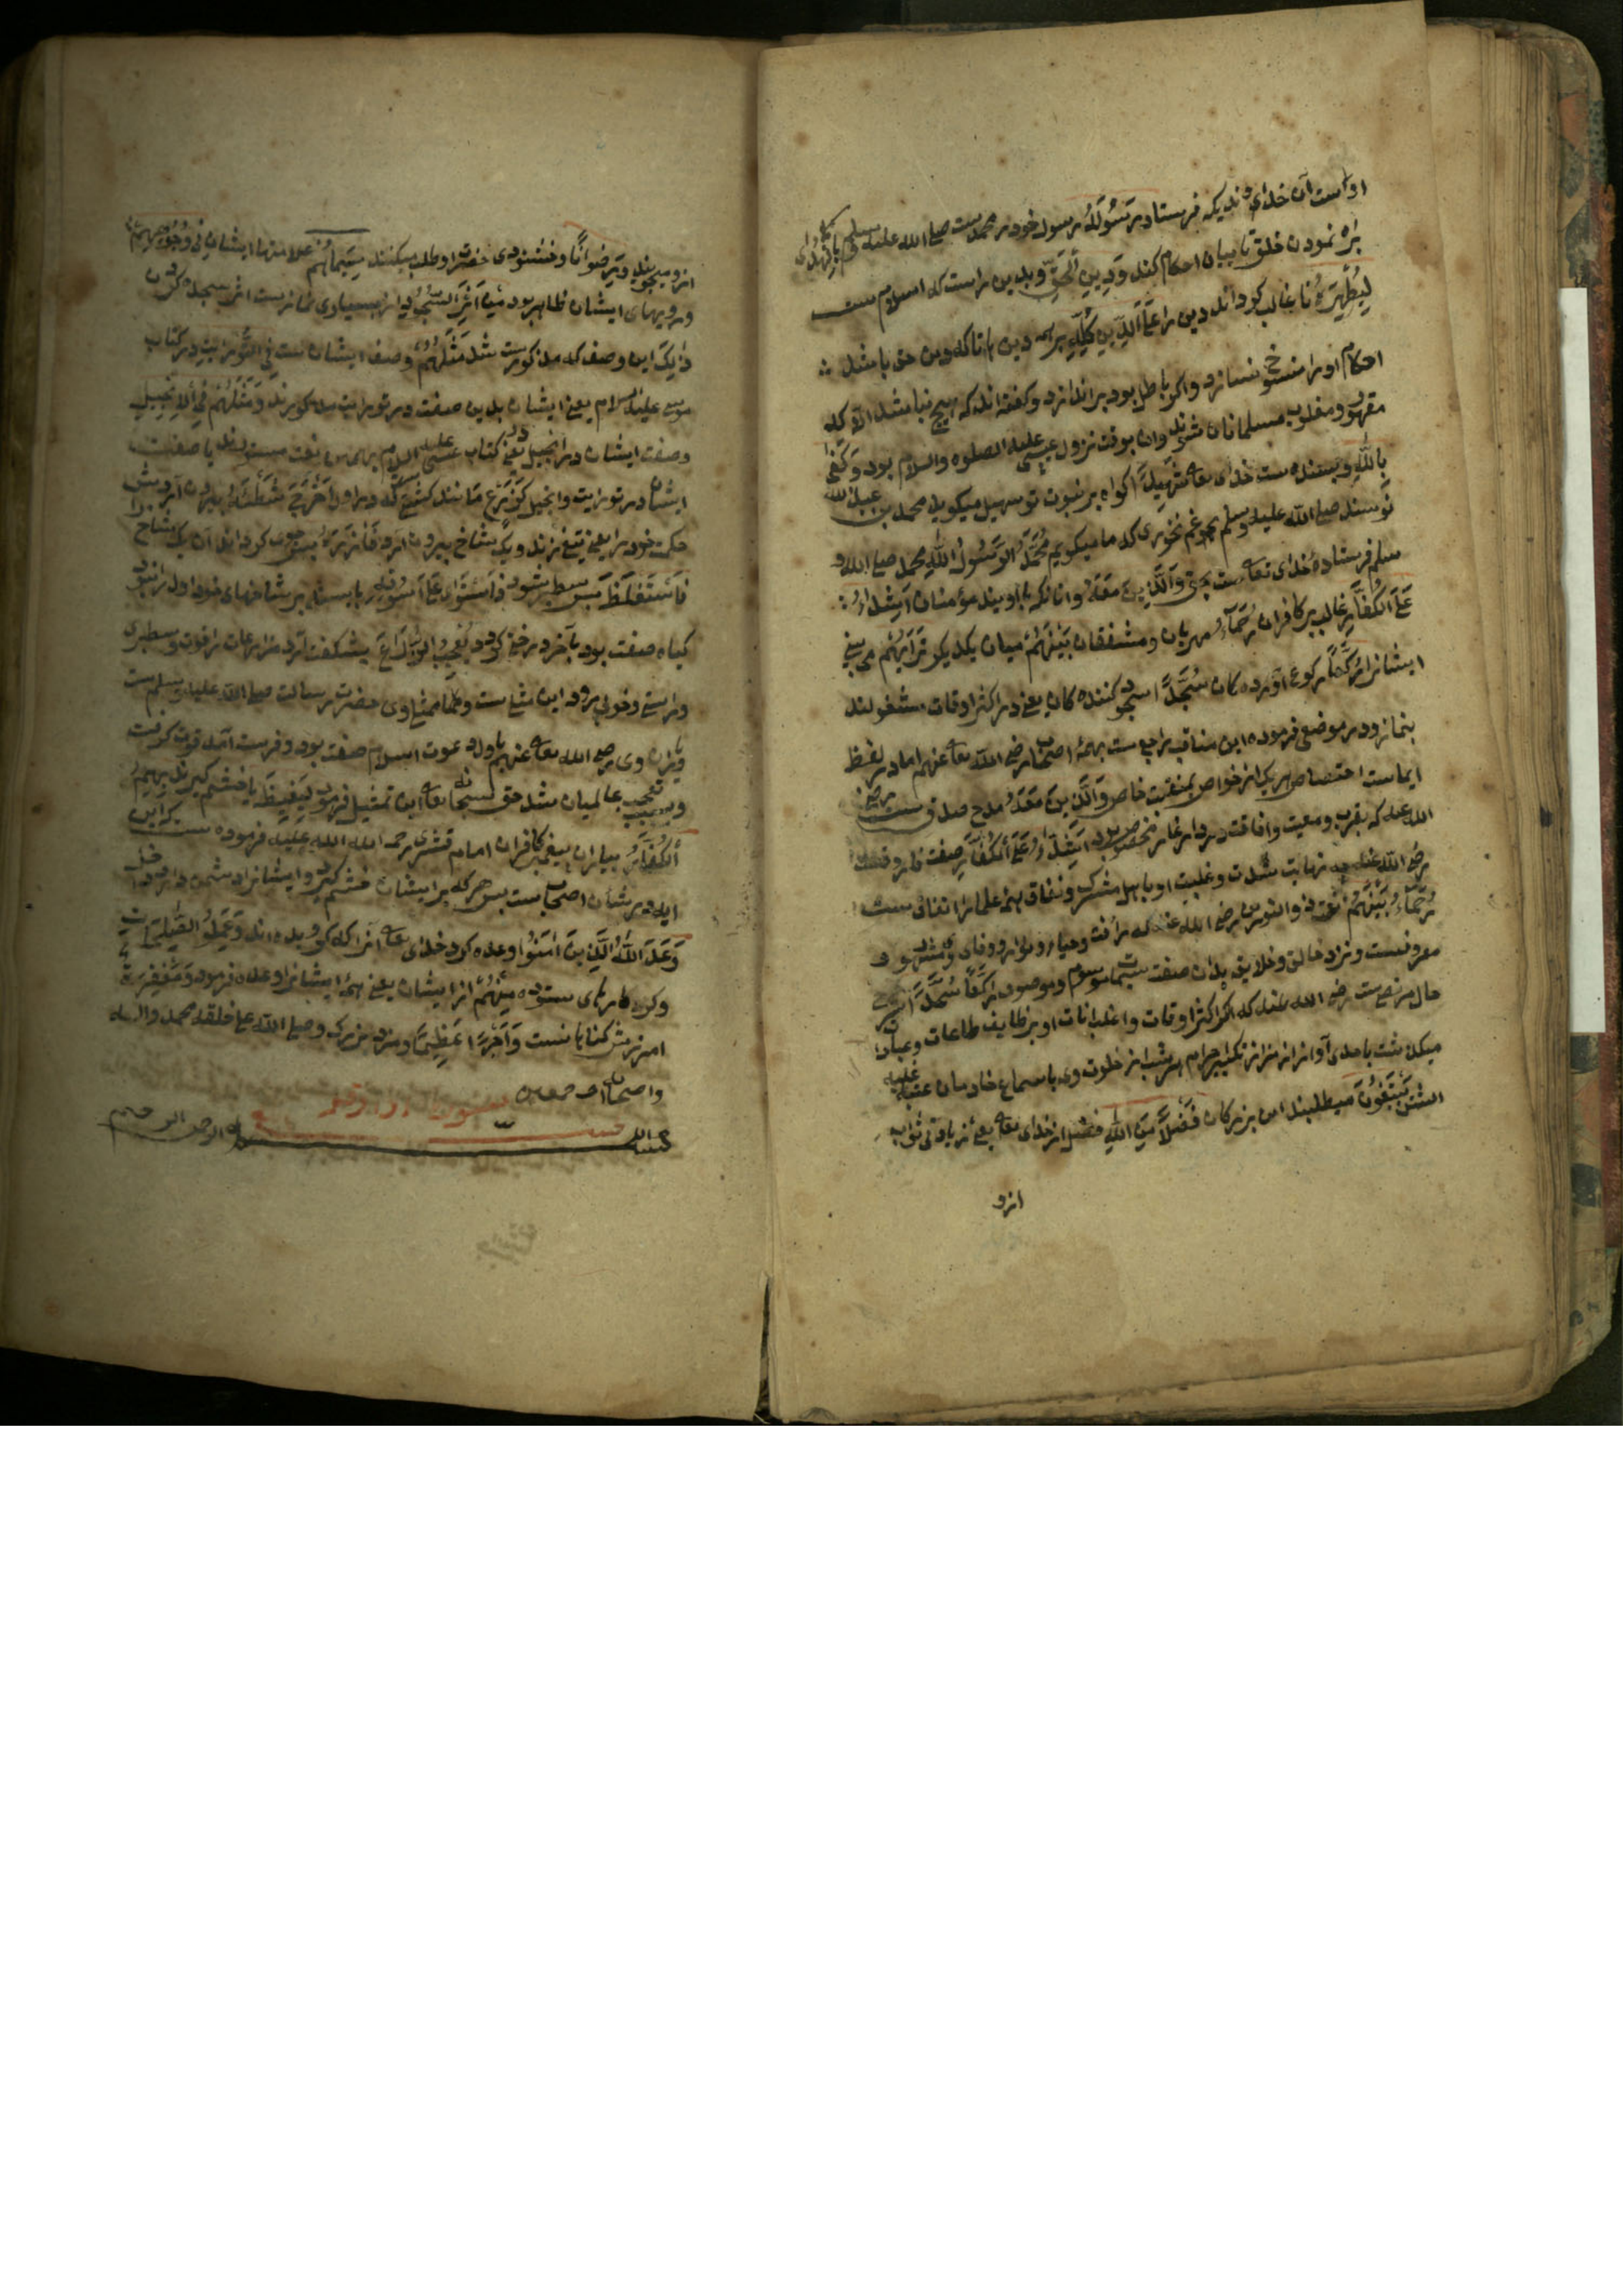 اواست آن خدای وندیکه فرستاد رَسُولَهُ رسول خود را محمدست صلی الله علیه وسلم بِالْهُدٰی
براه نمودن خلق تا بیان احکام کند وَدِینِ الْحَقِّ وبدین راست که اسلام ست
لِیُظْهِرَهُ تا غالب گرداند دین را عَلَی الدِّینِ کُلِّهِ برهمه دین ها تا که دین حق باشد
احکام اورا منسوخ سازد واکر باطل بود براندازد وکفته اند که هیچ نباشد الا که
مقهور ومغلوب مسلمانان شوند وآن بوقت نزول عیسی علیه الصلوه والسلام بود وَکَفٰی
بِاللهِ وبسنده ست خدای تعالی شَهِیدًا کواه بر نبوت تو سهیل میکوید محمد بن عبد الله
نویسند صلی الله علیه وسلم تو غم نخوری که ما میکویم مُحَمَّدُ الرَسُولُ اللهِ محمد صلی الله و
سلم فرستادهٔ خدای تعالی ست بحق وَالَّذِینَ مَعَهُ وانانکه با اویند مؤمنان اَشِدَّاءُ
عَلَی الْکُفَّارِ غالب بر کافران رُحَمَاءُ مهربان ومشفقان بَیْنَهُمْ میان یکدیکر تَرٰیهُمْ می بینی
ایشانرا رُکَّعًا رکوع آورده کان سُجَّدًا سجود کننده کان یعنی در اکثر اوقات مشغولند
بنماز ودر موضعی فرموده این مناقب راجع ست بهمهٔ اصحاب رضی الله تعالی عنهم اما در لفظ
ایماست اختصاص هریک از خواص بمنقبت خاص وَالَّذِینَ مَعَهُ مدح صدیق ست رضی
الله عنه که بقرب ومعیت وافاقت در دار غار مخصوص بود اَشِدَّاءُ عَلَی الْکُفَّارِ صفت فاروقست
رضی الله عنه که نهایت شدت وغلبت او با اهل شرک ونفاق همه علما را اتفاق ست
رُحَمَاءُ بَیْنَهُمْ نعت ذو النورین رضی الله عنه که برأفت وحیا ووفای مشهور و
معروفست ونزد خالق وخلایق بدان صفت موسوم وموصوف رُکَّعًا سُجَّدًا شرح
حال مرتضی ست رضی الله عنه که اکثر اوقات واغلب انات او بوظایف طاعات وعبادات
میکذشت باحدی آواز هزار تکبیر احرام هر شب از خلوت وی باسماع خادمان عتبه علیه
یَبْتَغُونَ میطلبند این بزرکان فَضْلًا مِنَ اللهِ فضل از خدای تعالی یعنی زیادتی ثواب
ازو
ازو میجویند وَرِضْوَانًا وخشنودی حضرت او طلب میکنند سِیمَاهُمْ علامتها ایشان فِی وُجُوهِهِمْ
در رویهای ایشان ظاهر بود مِنْ اَثَرِ السُّجُودِ از بسیاری نمازست اثر سجده کردن
ذٰلِکَ این وصف که مذکور ست شد مَثَلُهُمْ وصف ایشان ست فِی التَّوْرٰیةِ در کتاب
موسی علیه السلام یعنی ایشان بدین صفت در توریت مذکورند وَمَثَلُهُمْ فِی الْاِنْجِیلِ
وصفت ایشان در انجیل یعنی در کتاب عیسی علیه السلام برین نعت مسطورند یا صفت
ایشان در توریت وانجیل کَزَرْعٍ مانند کشتی ست که دراول اَخْرَجَ شَطْئَهُ بیرون آرد بیش
حکمت خود را یعنی تیغ زند ویک شاخ بیرون آرد فَاٰزَرَهُ پس قوی کرداند آن یک شاخ را
فَاسْتَغْلَظَ پس سطبر شود فَاسْتَوٰی عَلٰی سُوقِهِ پس بایستد بر شاخهای خود اول ازو
کیاه صفت بود بآخر درخت کردد یُعْجِبُ الزُّرَّاعَ بشکفت آرد مزارعان را قوت وسطبری
وراستی وخوبی رود این مثلی ست
یاران وی رضی الله تعالی عنهم باول دعوت اسلام صفت بود وفرست آمد قوت کرفت
وسبب تعجب عالمیان شد حق سبحانه تعالی این تمثیل فرمود لِیَغِیظَ تا خشم کیرند بِهِمُ
الْکُفَّارَ بیاران یعنی کافران امام قشیری رحمه الله علیه فرموده ست که این
ایه در شان اصحاب ست پس هرکه بر ایشان خشم کیرد وایشانرا دشمن دارد
وَعَدَ اللهُ الَّذِینَ اٰمَنُوا وعده کرد خدای تعالی آنرا که کرویده اند وَعَمِلُوا الصّٰلِحٰتِ
وکرده کارهای ستوده مِنْهُمْ از ایشان یعنی همهٔ ایشانرا وعده فرمود مَغْفِرَةً
آمرزش کناهانست وَاَجْرًا عَظِیمًا ومزد بزرک وصلی الله علی خلقه محمد واله
واصحابه اجمعین
بسم الله الرحمن الرحیم